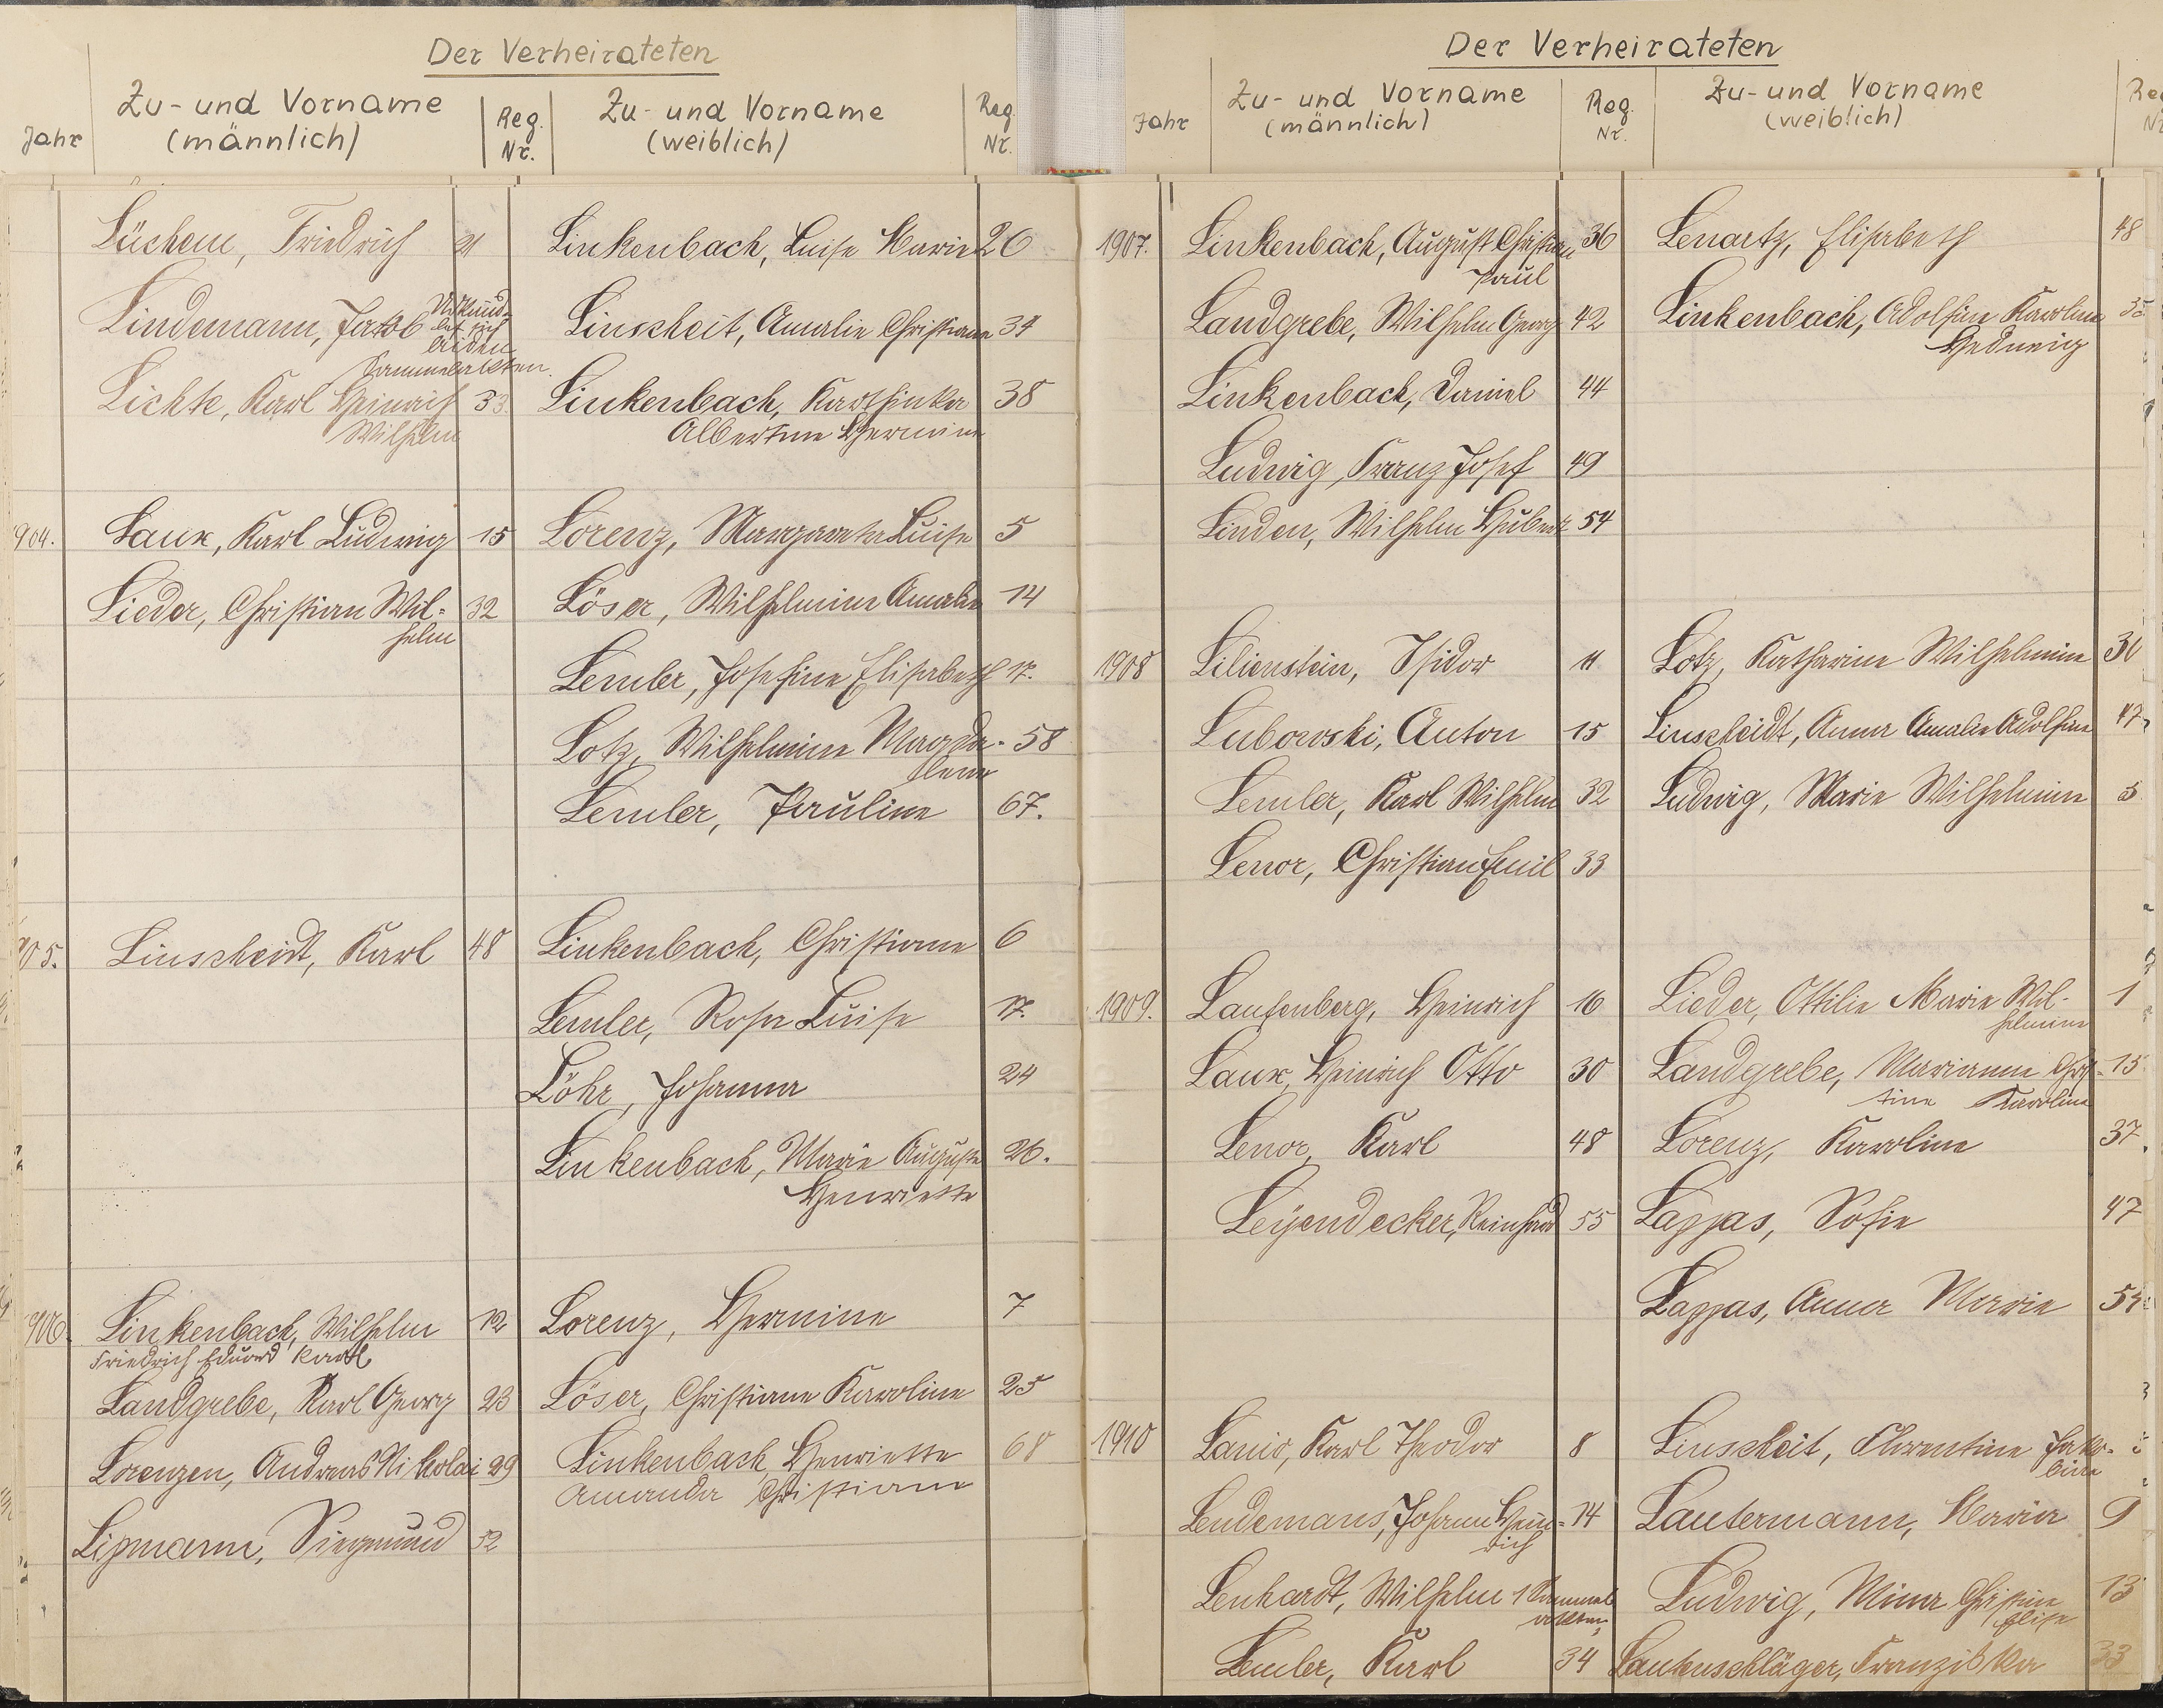 Der Verheirateten
Jahr
Zu- und Vorname
(männlich)
Reg.
Nr.
Zu- und Vorname
(weiblich)
Reg.
Nr.
Lüchem, Friedrich 21 Linkenbach, Luise Marie 26
Lindemann, Jakob Linscheit, Amalie Christiane 34
den
Sammelakten.
Lichte, Karl Heinrich 33. Linkenbach, Kathinka 38
Wilhelm Albertine Hermine
904. Laux, Karl Ludwig 15 Lorenz, Margareta Luise 5
Lieder, Christian Wil- 32 Löser, Wilhelmine Amalie 14
helm
Lemler, Josefine Elisabeth 17.
Lotz, Wilhelmine Magda- 58
lena
Lemler, Pauline 67.
905. Linscheidt, Karl 48 Linkenbach, Christiane 6
Lemler, Rosa Luise 17.
Löhr, Johanna 24
Linkenbach, Marie Auguste 26.
Henriette
906. Linkenbach, Wilhelm 12 Lorenz, Hermine 7
Friedrich Eduard Karl
Landgrebe, Karl Georg 23 Löser, Christiane Karoline 25
Lorenzen, Andreas Nikolai 29 Linkenbach, Henriette 68
Amanda Christiane
Lipmann, Siegmund 52
Der Verheirateten
Jahr
Zu- und Vorname
(männlich)
Reg.
Nr.
Zu- und Vorname
(weiblich)
1907. Linkenbach, August Christian 36 Lenartz, Elisabeth 48
Paul
Landgrebe, Wilhelm Georg 42 Linkenbach, Adolfine Karoline
Hedwig
Linkenbach, Daniel 44
Ludwig, Franz Josef 49
Linden, Wilhelm Hubert 54
1908 Lilienstein, Isidor 11 Lotz, Katharine Wilhelmine
Lubowski, Anton 15 Linscheidt, Anna Amalie Adolfine 47
Lemler, Karl Wilhelm 32 Ludwig, Marie Wilhelmine
Lenor, Christian Emil 33
1909. Laufenberg, Heinrich 16 Lieder, Ottilie Marie Wil- 1
helmine
Laux, Heinrich Otto 30 Landgrebe, Marianne Chris- 15
tine Karoline
Lenor, Karl 48 Lorenz, Karoline 37
Leyendecker, Reinhard 55 Lappas, Sofie 47
Lappas, Anna Marie
1910 Lanio, Karl Theodor 8 Linscheit, Florentine Jako-
bine
Lendemans, Johann Hein- 14 Lautermann, Maria 9
rich
Lenhardt, Wilhelm 1 Sammel Ludwig, Mina Christine 13
akten, Elise
Lemler, Karl 34 Lautenschläger, Franziska 33